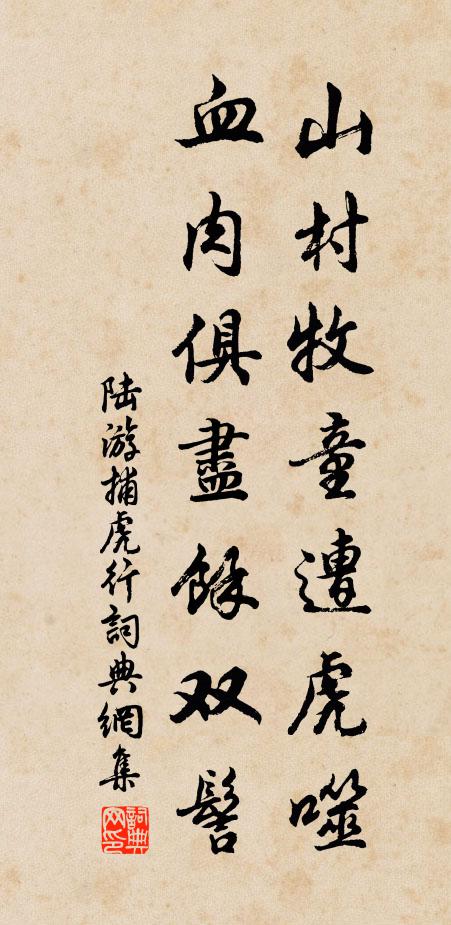 山村牧童遭虎噬
血肉俱盡餘双髻
陆游捕虎行詞典網集
詞典网印